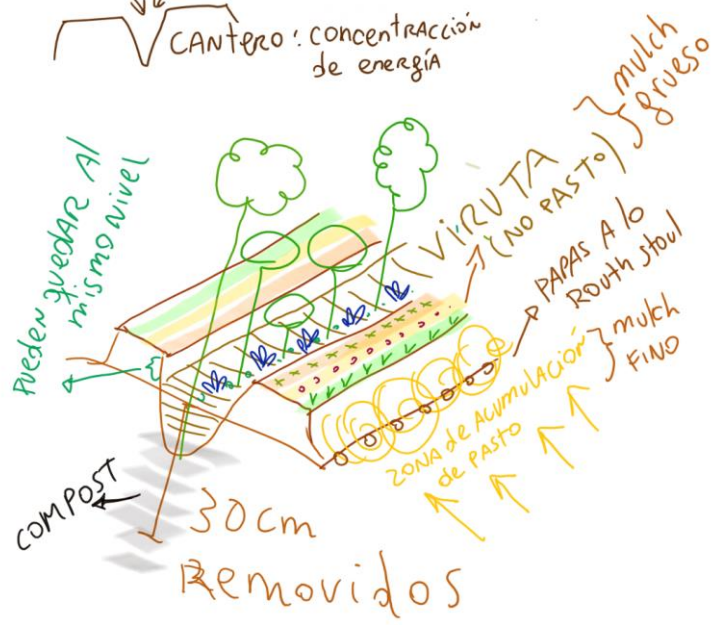 CANTERO: CONCENTRACCIÓN
de energía
Pueden quedar Al
mismo nivel
VIRUTA
(NO PASTO)
mulch
grueso
PAPAS A lo
Routh stoul
mulch
FINO
ZONA de Acumulación
de pasto
COMPOST
30cm
Removidos